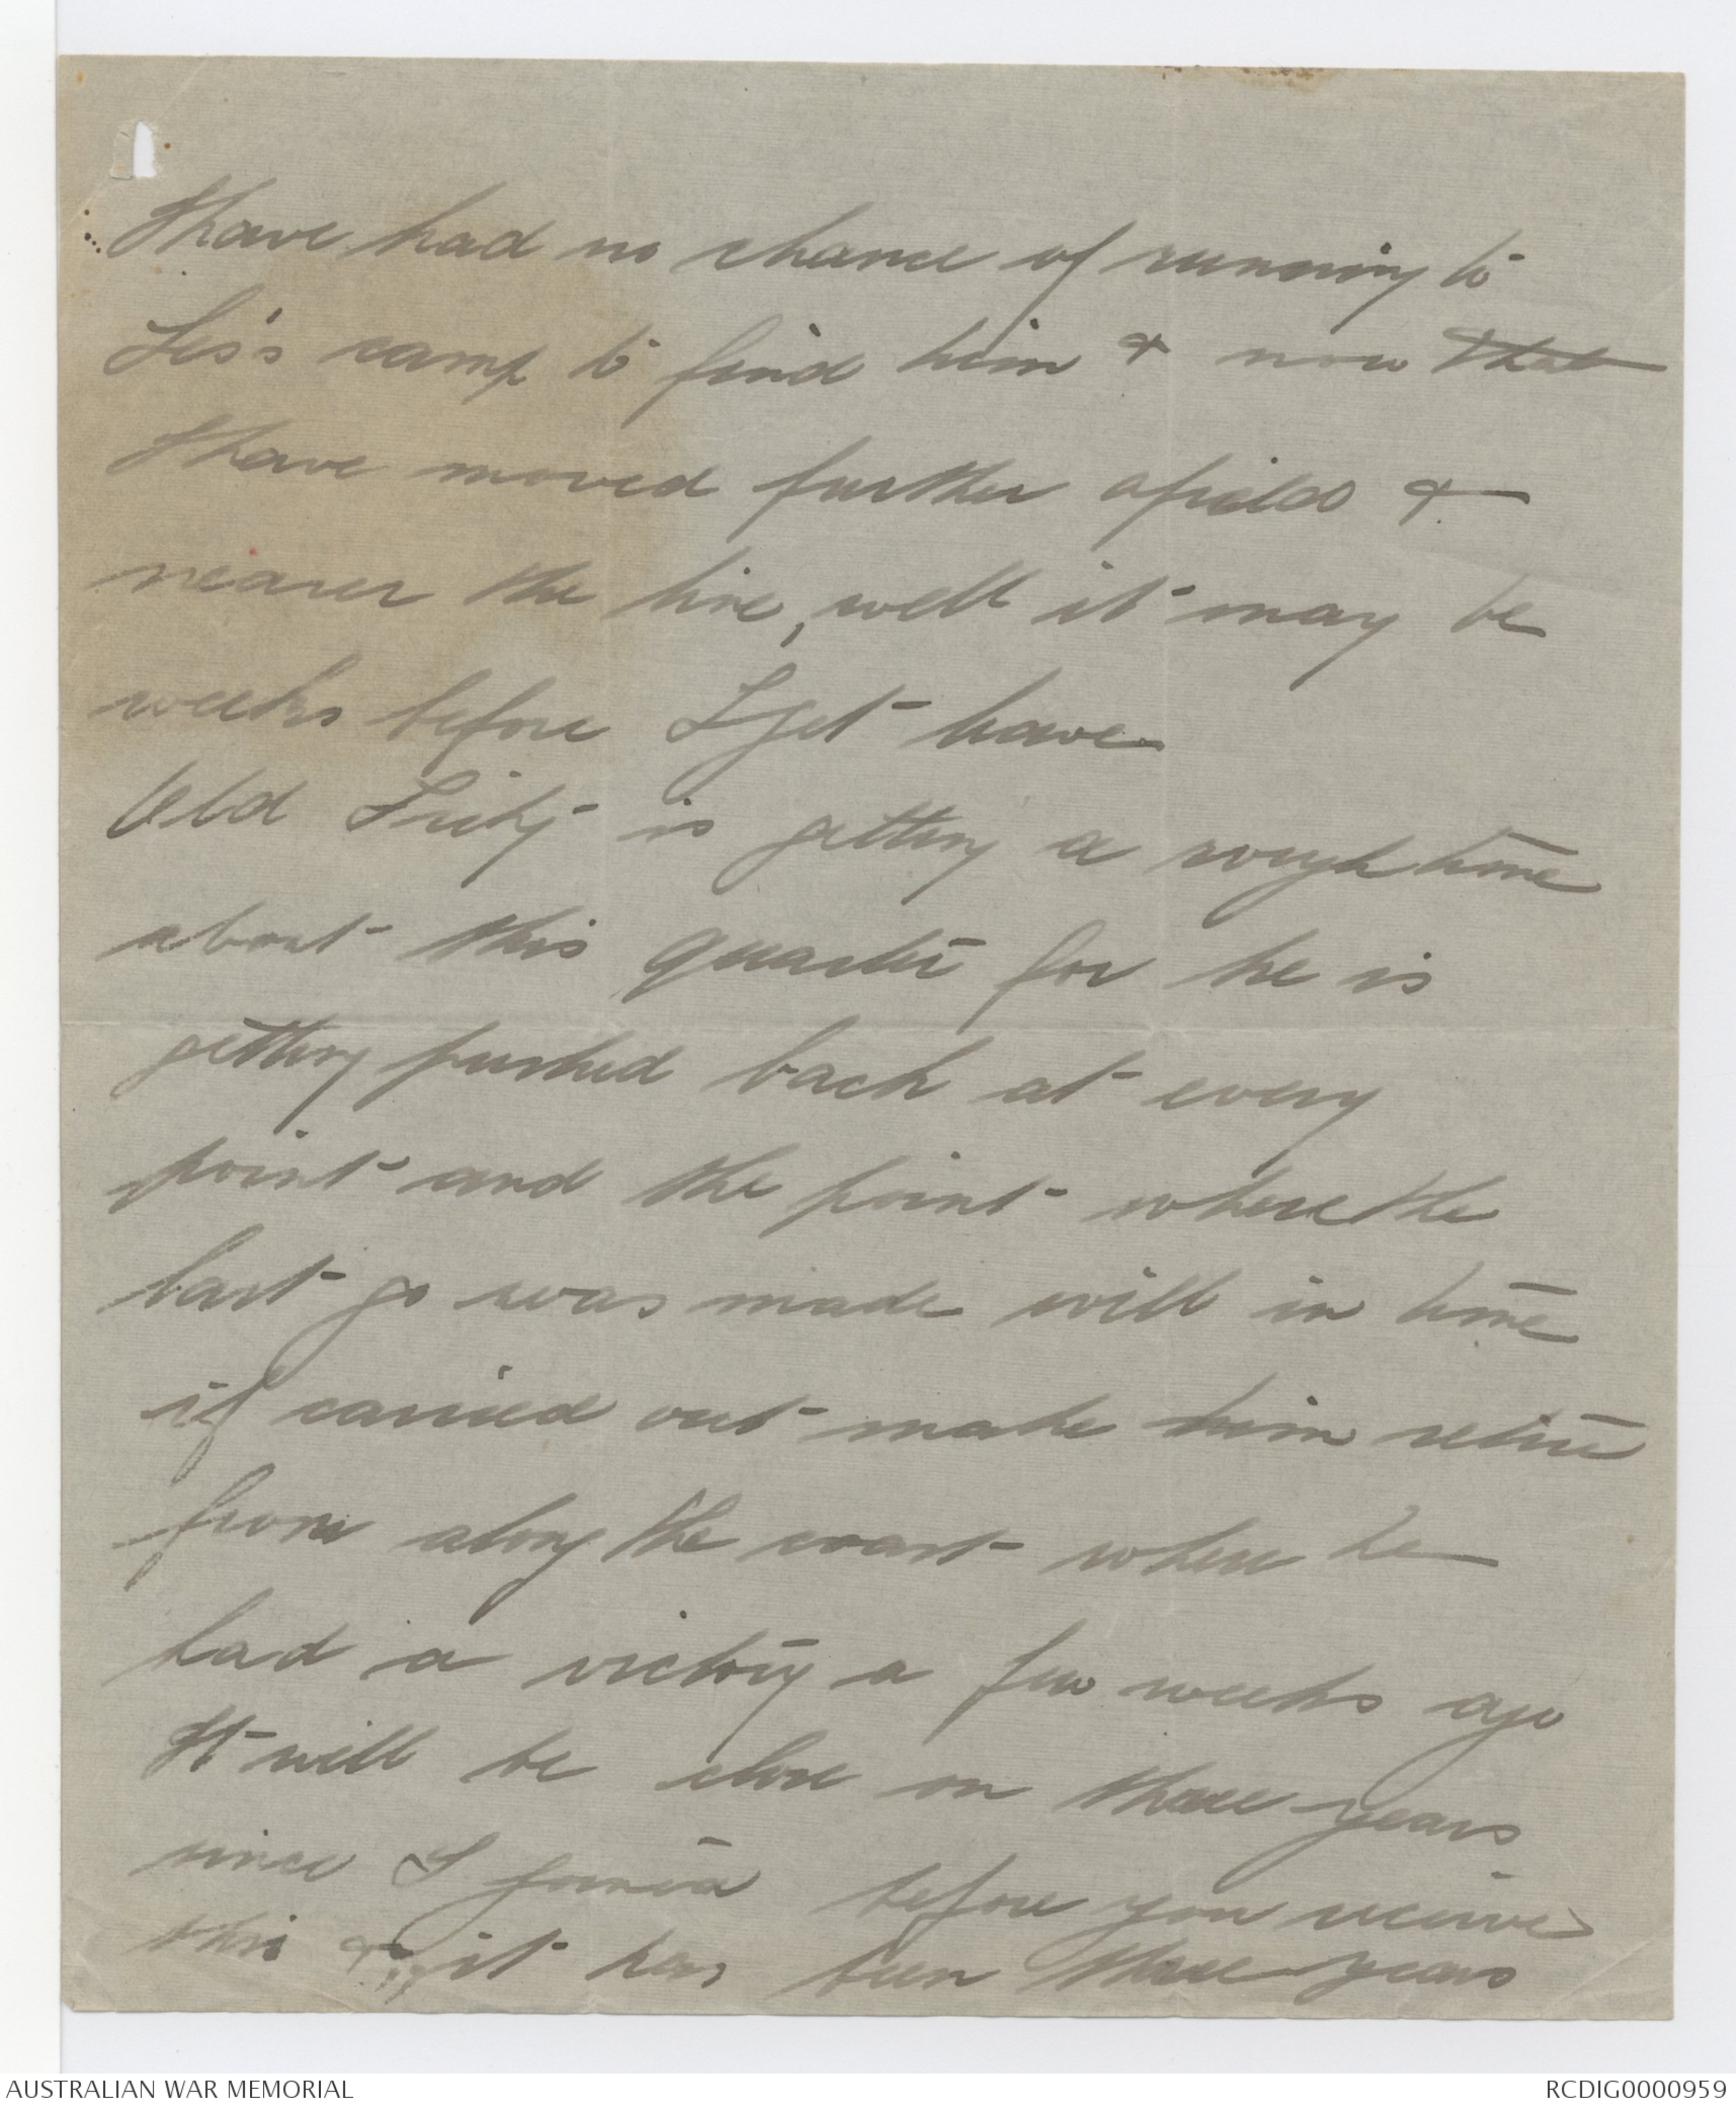 I have had no chance of running to
Les's camp to find him & now that
I have moved further afield &
nearer the line, well it may be
weeks before I get leave
Old Fritz is getting a rough time
about this quarter for he is
getting pushed back at every
point and the point where the
last go was made will in time
if carried out make him retire
from along the coast where he
had a victory a few weeks ago
It will be close on three years
since I joined before you receive
this & it has been three years
AUSTRALIAN WAR MEMORIAL
RCDIG0000959